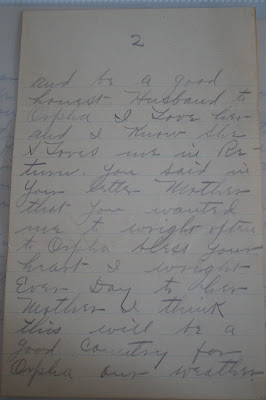 2
and be a good
honest Husband to
Orpha I Love her
and I Know she
Loves me in Re-
turn. You said in
Your letter Mother
that you wanted
me to wright often
to Orpha bless your
heart I wright
Ever Day to her
Mother I think
this will be a
good Country for
Orpha our weather